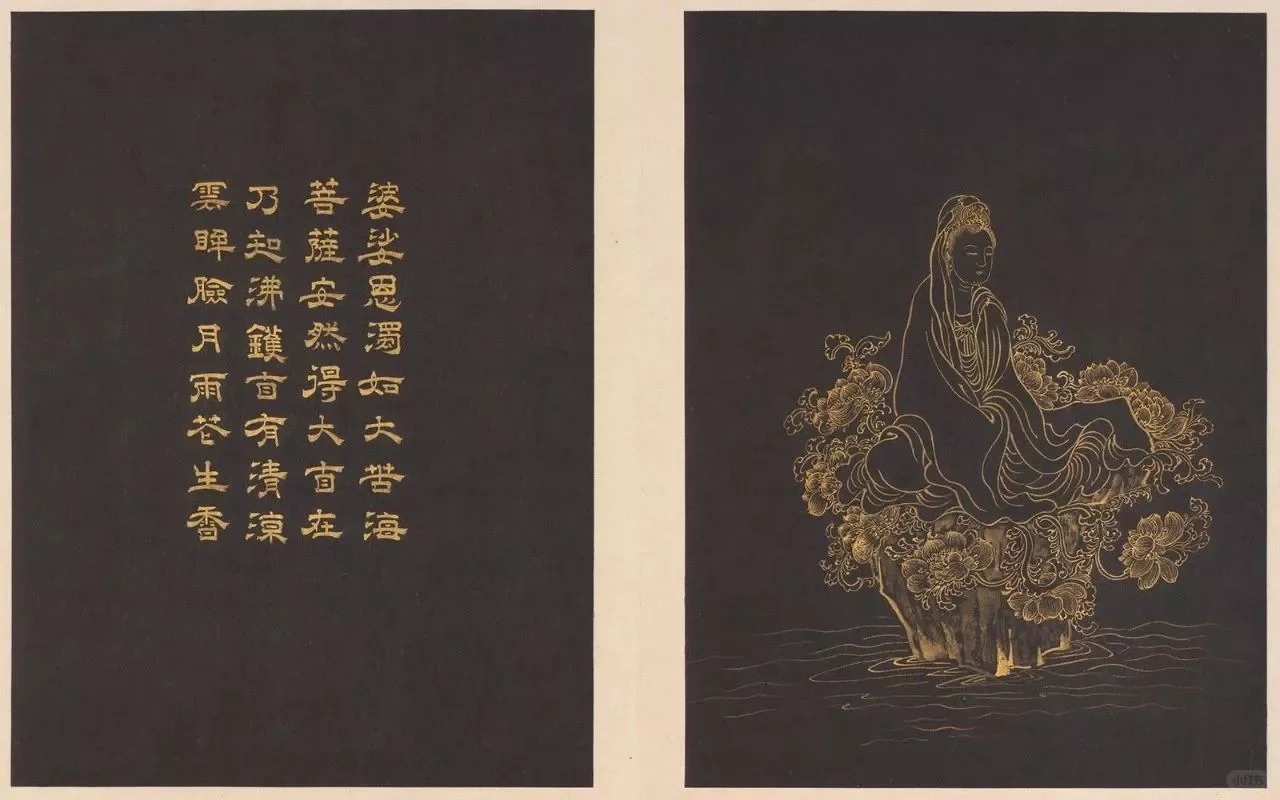 婆娑恩濁如大苦海
菩薩安然得大自在
乃知沸鑊自有清涼
雲眸臉月雨花生香
小红书